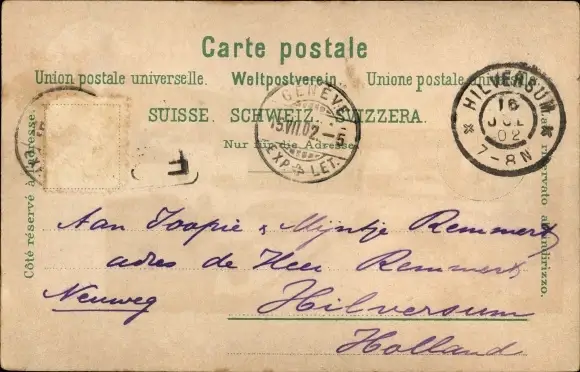 Carte postale
Union postale universelle. Weltpostverein. Unione postale universale.
SUISSE. SCHWEIZ. SVIZZERA.
Nur für die Adresse.
Côté réservé à l'adresse.
Lato riservato all'indirizzo.
GENÈVE
15.VII.02.-5
EXP. LET.
HILVERSUM
16
JUL
02
7-8N
T
Aan Joopie & Mijntje Remmert
adres de Heer Remmert,
Neuweg Hilversum
Holland